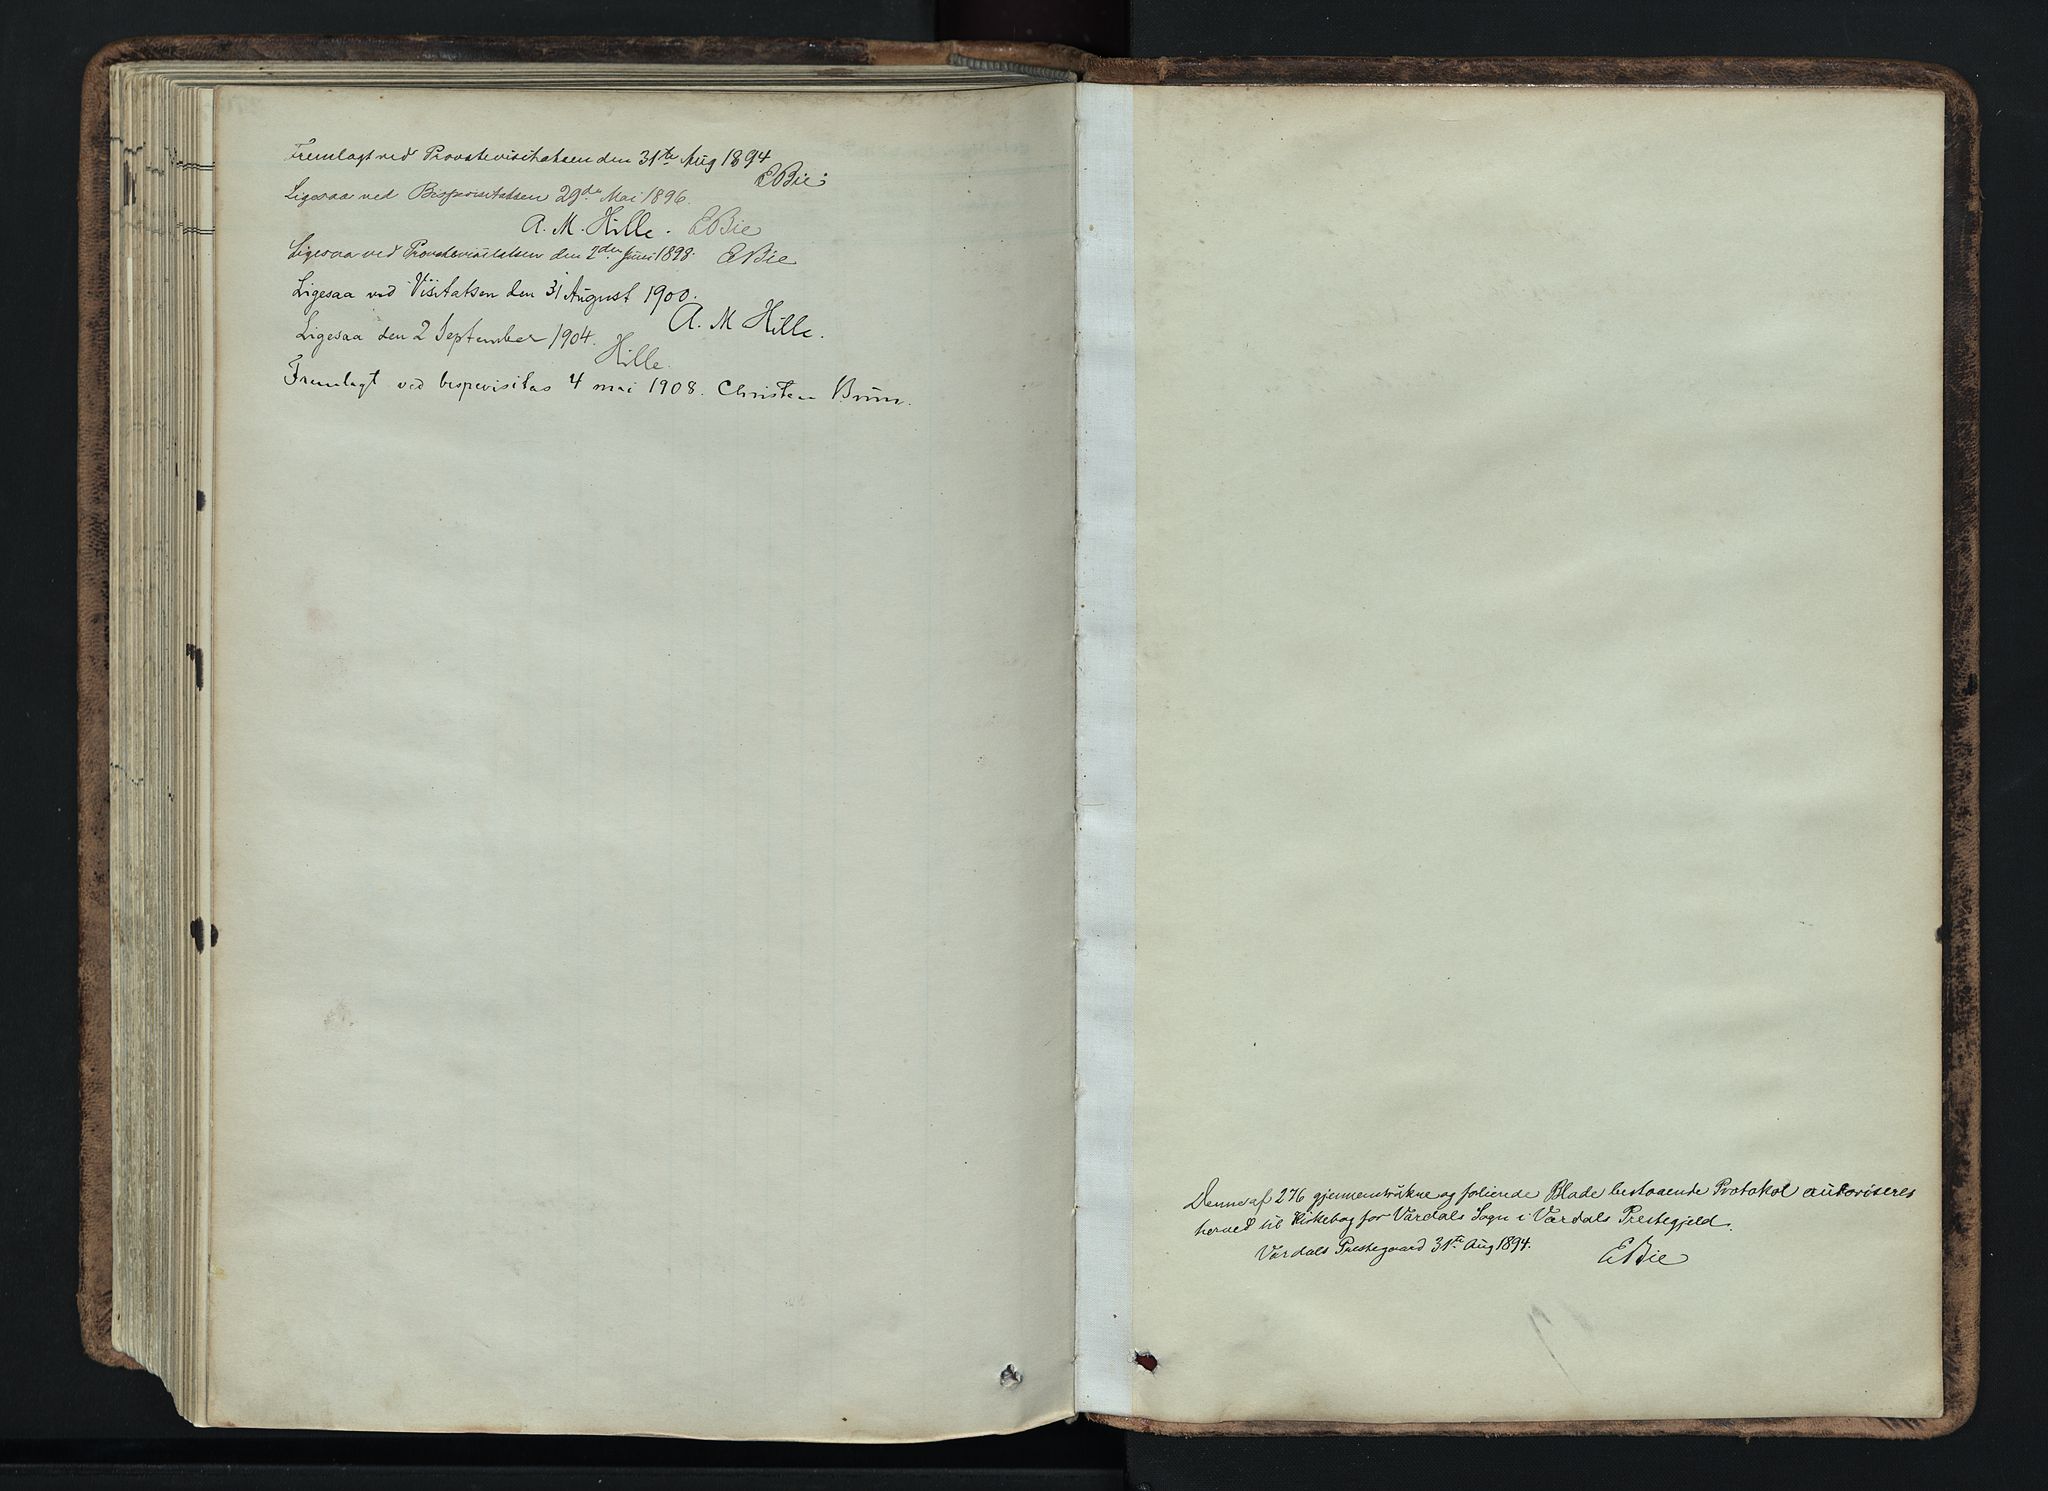 Fremlagt ved Provstevisitatsen den 31te Aug 1894
EBie.
Ligesaa ved Bispevisitatsen 29de Mai 1896.
A. M. Hille. EBie
Ligesaa ved Provstevisitatsen den 2den Juni 1898. EBie
Ligesaa ved Visitatsen den 31 August 1900.
A. M Hille.
Ligesaa den 2 September 1904.
Hille.
Fremlagt ved bispevisitas 4 mai 1908. Christen Brun.
Denne af 276 gjennemtrukne og folierede Blade bestaaende Protokol autoriseres
herved til Kirkebog for Vardals Sogn i Vardals Prestegjeld.
Vardals Prestegaard 31te Aug 1894.
EBie